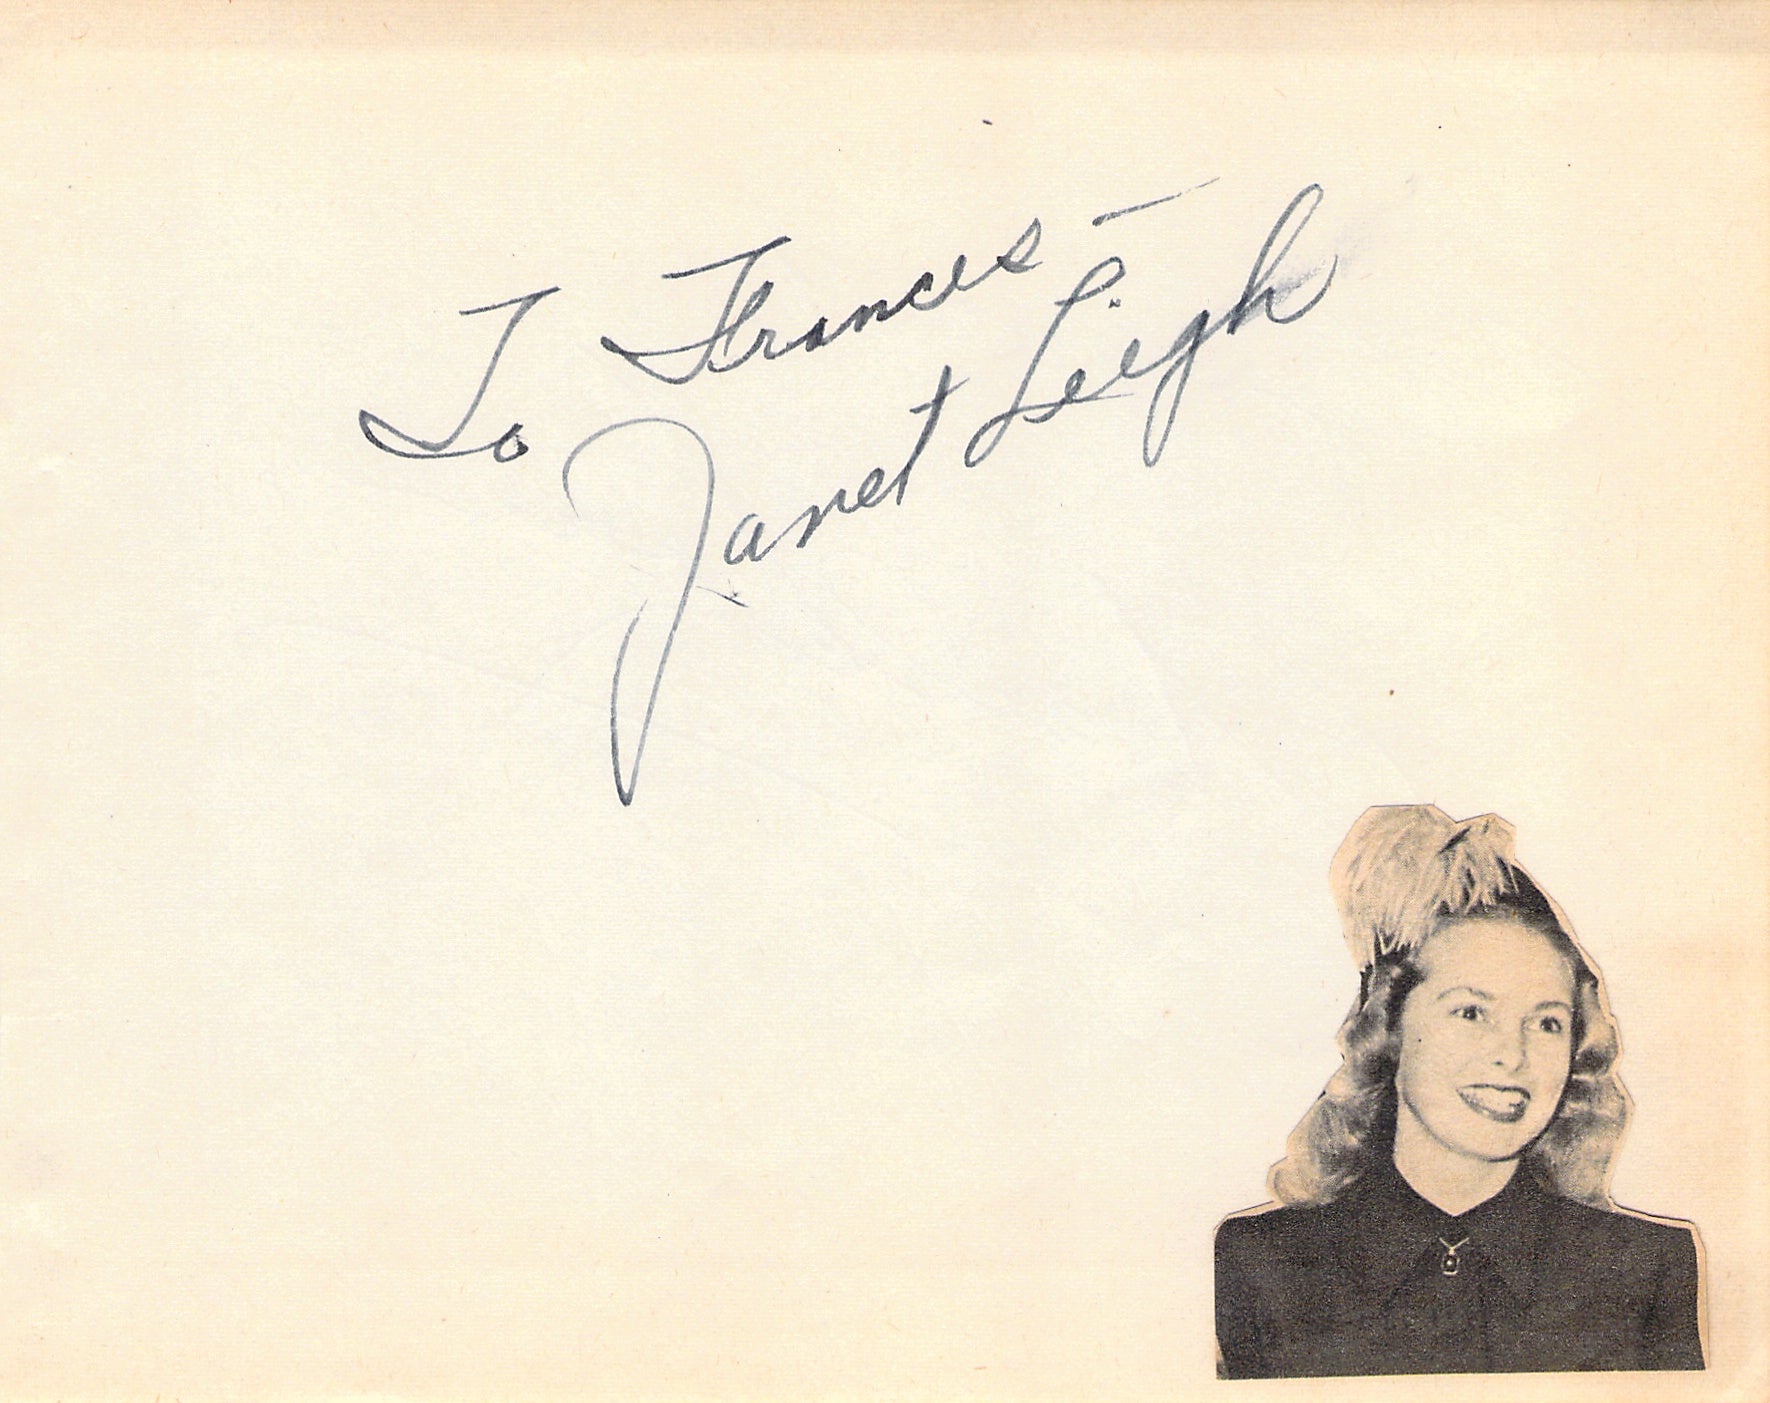 To Frances —
Janet Leigh